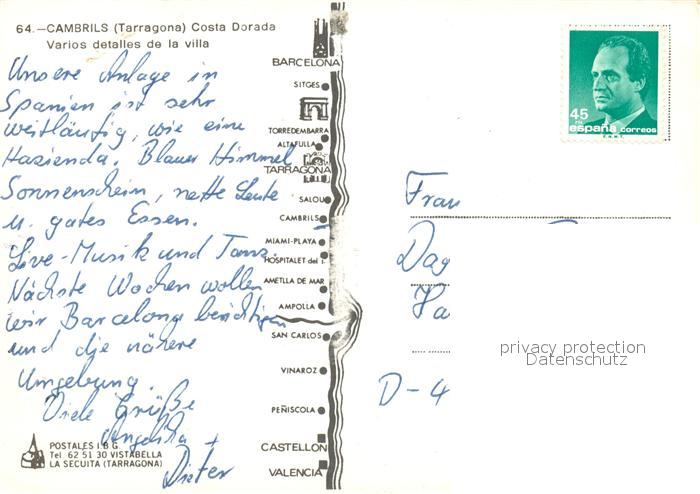 64.-CAMBRILS (Tarragona) Costa Dorada
Varios detalles de la villa
Unsere Anlage in
Spanien ist sehr
weitläufig, wie eine
Hazienda. Blauer Himmel
Sonnenschein, nette Leute
u. gutes Essen.
Live-Musik und Tanz.
Nächste Wochen wollen
wir Barcelona besichtigen
und die nähere
Umgebung.
Viele Grüße
Angelika +
Dieter
POSTALES I.B.G.
Tel 62 51 30 VISTABELLA
LA SECUITA (TARRAGONA)
BARCELONA
SITGES
TORREDEMBARRA
ALTAFULLA
TARRAGONA
SALOU
CAMBRILS
MIAMI-PLAYA
HOSPITALET del I.
AMETLLA DE MAR
AMPOLLA
SAN CARLOS
VINAROZ
PEÑISCOLA
CASTELLON
VALENCIA
45
españa correos
Frau
Dag
Ha
D-4
privacy protection
Datenschutz